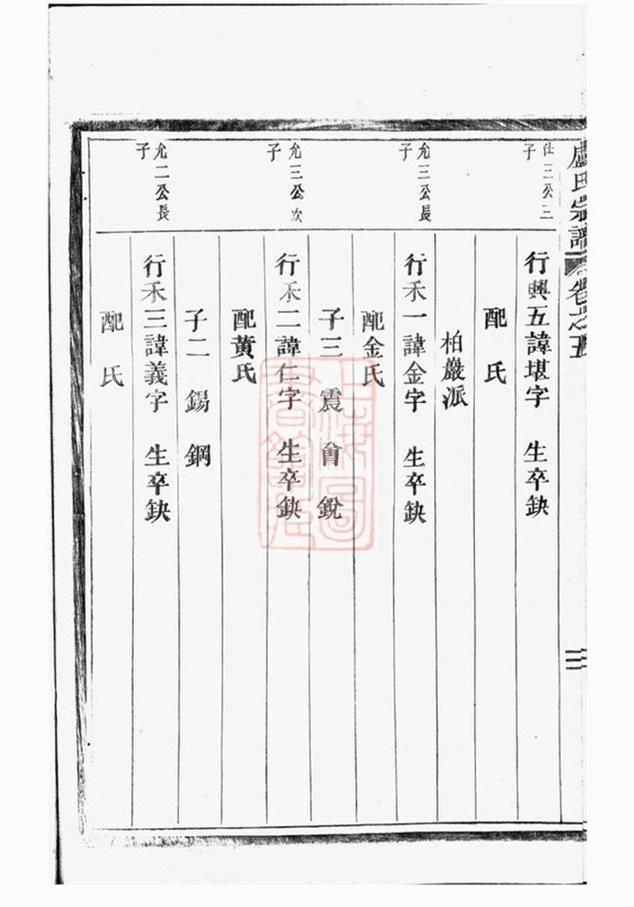 盧氏宗譜 卷之五
三
仕三公三子
行興五諱堪字 生卒缺
配 氏
柏巖派
允三公長子
行禾一諱金字 生卒缺
配金氏
子三 震 會 銳
允三公次子
行禾二諱仁字 生卒缺
配黃氏
子二 錫 鋼
允二公長子
行禾三諱義字 生卒缺
配 氏